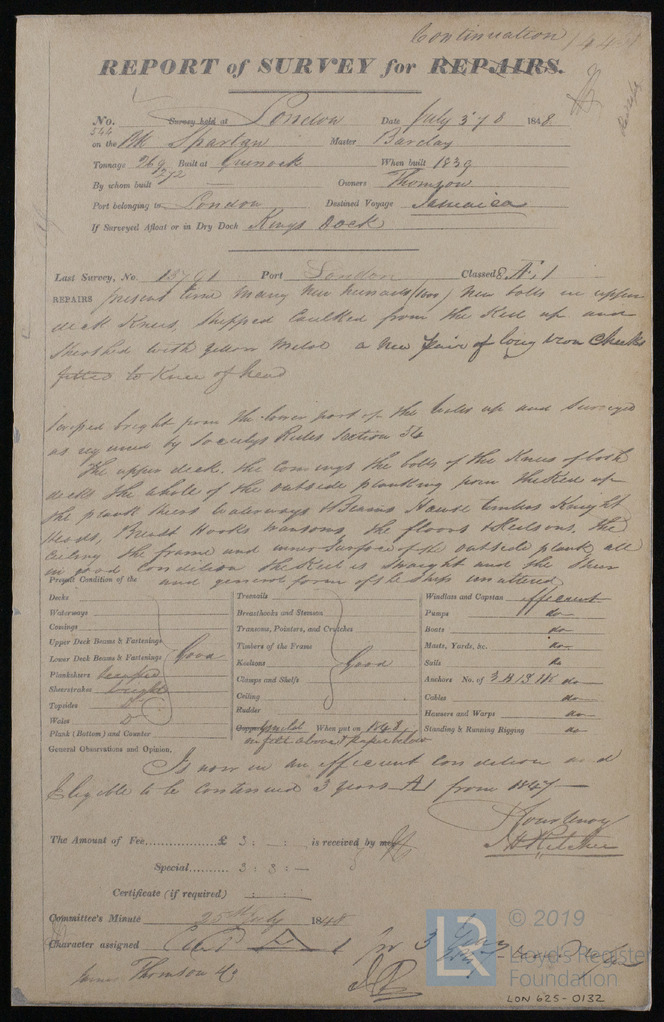 Continuation
REPORT of SURVEY for REPAIRS.
No. 544 Survey held at London Date July 3 & 8 1848.
on the Bk Spartan Master Barclay
Tonnage 269 / 272 Built at Greenock When built 1839
By whom built Owners Thomson
Port belonging to London Destined Voyage Jamaica
If Surveyed Afloat or in Dry Dock Kings Dock
Last Survey, No. 13761 Port London Classed 8 A.1
REPAIRS present time many new treenails (1500) New bolts in upper
deck Knees, stripped Caulked from the Keel up and
Sheathed with yellow metal a new pair of long iron Cheeks
fitted to Knee of head
Scraped bright from the lower part of the Wales up and Surveyed
as required by Societys Rules Section 34
The upper deck, the Comings the bolts of the Knees of both
decks the whole of the outside planking from the Keel up
the plank sheers Waterways & Beams Hawse timbers Knight
Heads, Breast Hooks transoms, the floors & Keelsons, the
Ceiling the frame and inner Surface of the outside plank all
in good condition the Keel is straight and the Sheer
and general form of the Ship unaltered
Present Condition of the
Decks
Waterways
Comings
Upper Deck Beams & Fastenings
Lower Deck Beams & Fastenings Good
Planksheers scraped
Sheerstrakes bright
Topsides Do
Wales Do
Plank (Bottom) and Counter
Treenails
Breasthooks and Stemson
Transoms, Pointers, and Crutches
Timbers of the Frame
Keelsons Good
Clamps and Shelfs
Ceiling
Rudder
Copper Y metal When put on 1848
on felt above & paper below
Windlass and Capstan efficient
Pumps do
Boats do
Masts, Yards, &c. do
Sails do
Anchors No. of 3 B 1 S 1 K do
Cables do
Hawsers and Warps do
Standing & Running Rigging do
General Observations and Opinion,
Is now in an efficient condition and
Eligible to be continued 3 years A1 from 1847
J Courtenay
J H Ritchie
The Amount of Fee £ 3 : - : - is received by me
Special 3 : 3 : -
Certificate (if required) : :
Committee's Minute 25th July 1848
Character assigned A 1 for 3 Years
James Thomson & Co
© 2019
LR
Lloyd's Register
Foundation
LON 625-0132